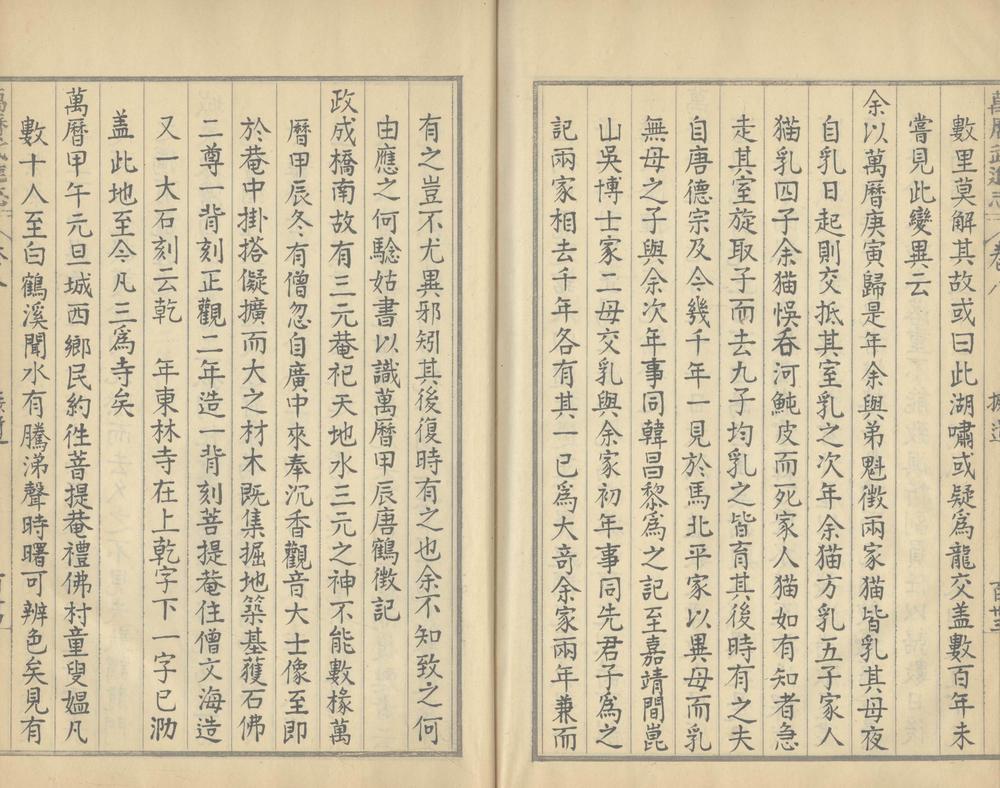 數里莫解其故或曰此湖嘯或疑爲龍交盖數百年未
嘗見此變異云
余以萬曆庚寅歸是年余與弟魁徵兩家猫皆乳其母夜
自乳日起則交抵其室乳之次年余猫方乳五子家人
猫乳四子余猫悞呑河魨皮而死家人猫如有知者急
走其室旋取子而去九子均乳之皆育其後時有之夫
自唐德宗及今幾千年一見於馬北平家以異母而乳
無母之子與余次年事同韓昌黎爲之記至嘉靖間崑
山吳博士家二母交乳與余家初年事同先君子爲之
記兩家相去千年各有其一已爲大竒余家兩年兼而
有之豈不尤異邪矧其後復時有之也余不知致之何
由應之何驗姑書以識萬曆甲辰唐鶴徵記
政成橋南故有三元菴祀天地水三元之神不能數椽萬
曆甲辰冬有僧忽自廣中來奉沉香觀音大士像至即
於菴中掛搭儗擴而大之材木既集掘地築基獲石佛
二尊一背刻正觀二年造一背刻菩提菴住僧文海造
又一大石刻云乾　年東林寺在上乾字下一字已泐
盖此地至今凡三爲寺矣
萬曆甲午元旦城西鄉民約徃菩提菴禮佛村童叟媪凡
數十人至白鶴溪聞水有騰涕聲時曙可辨色矣見有